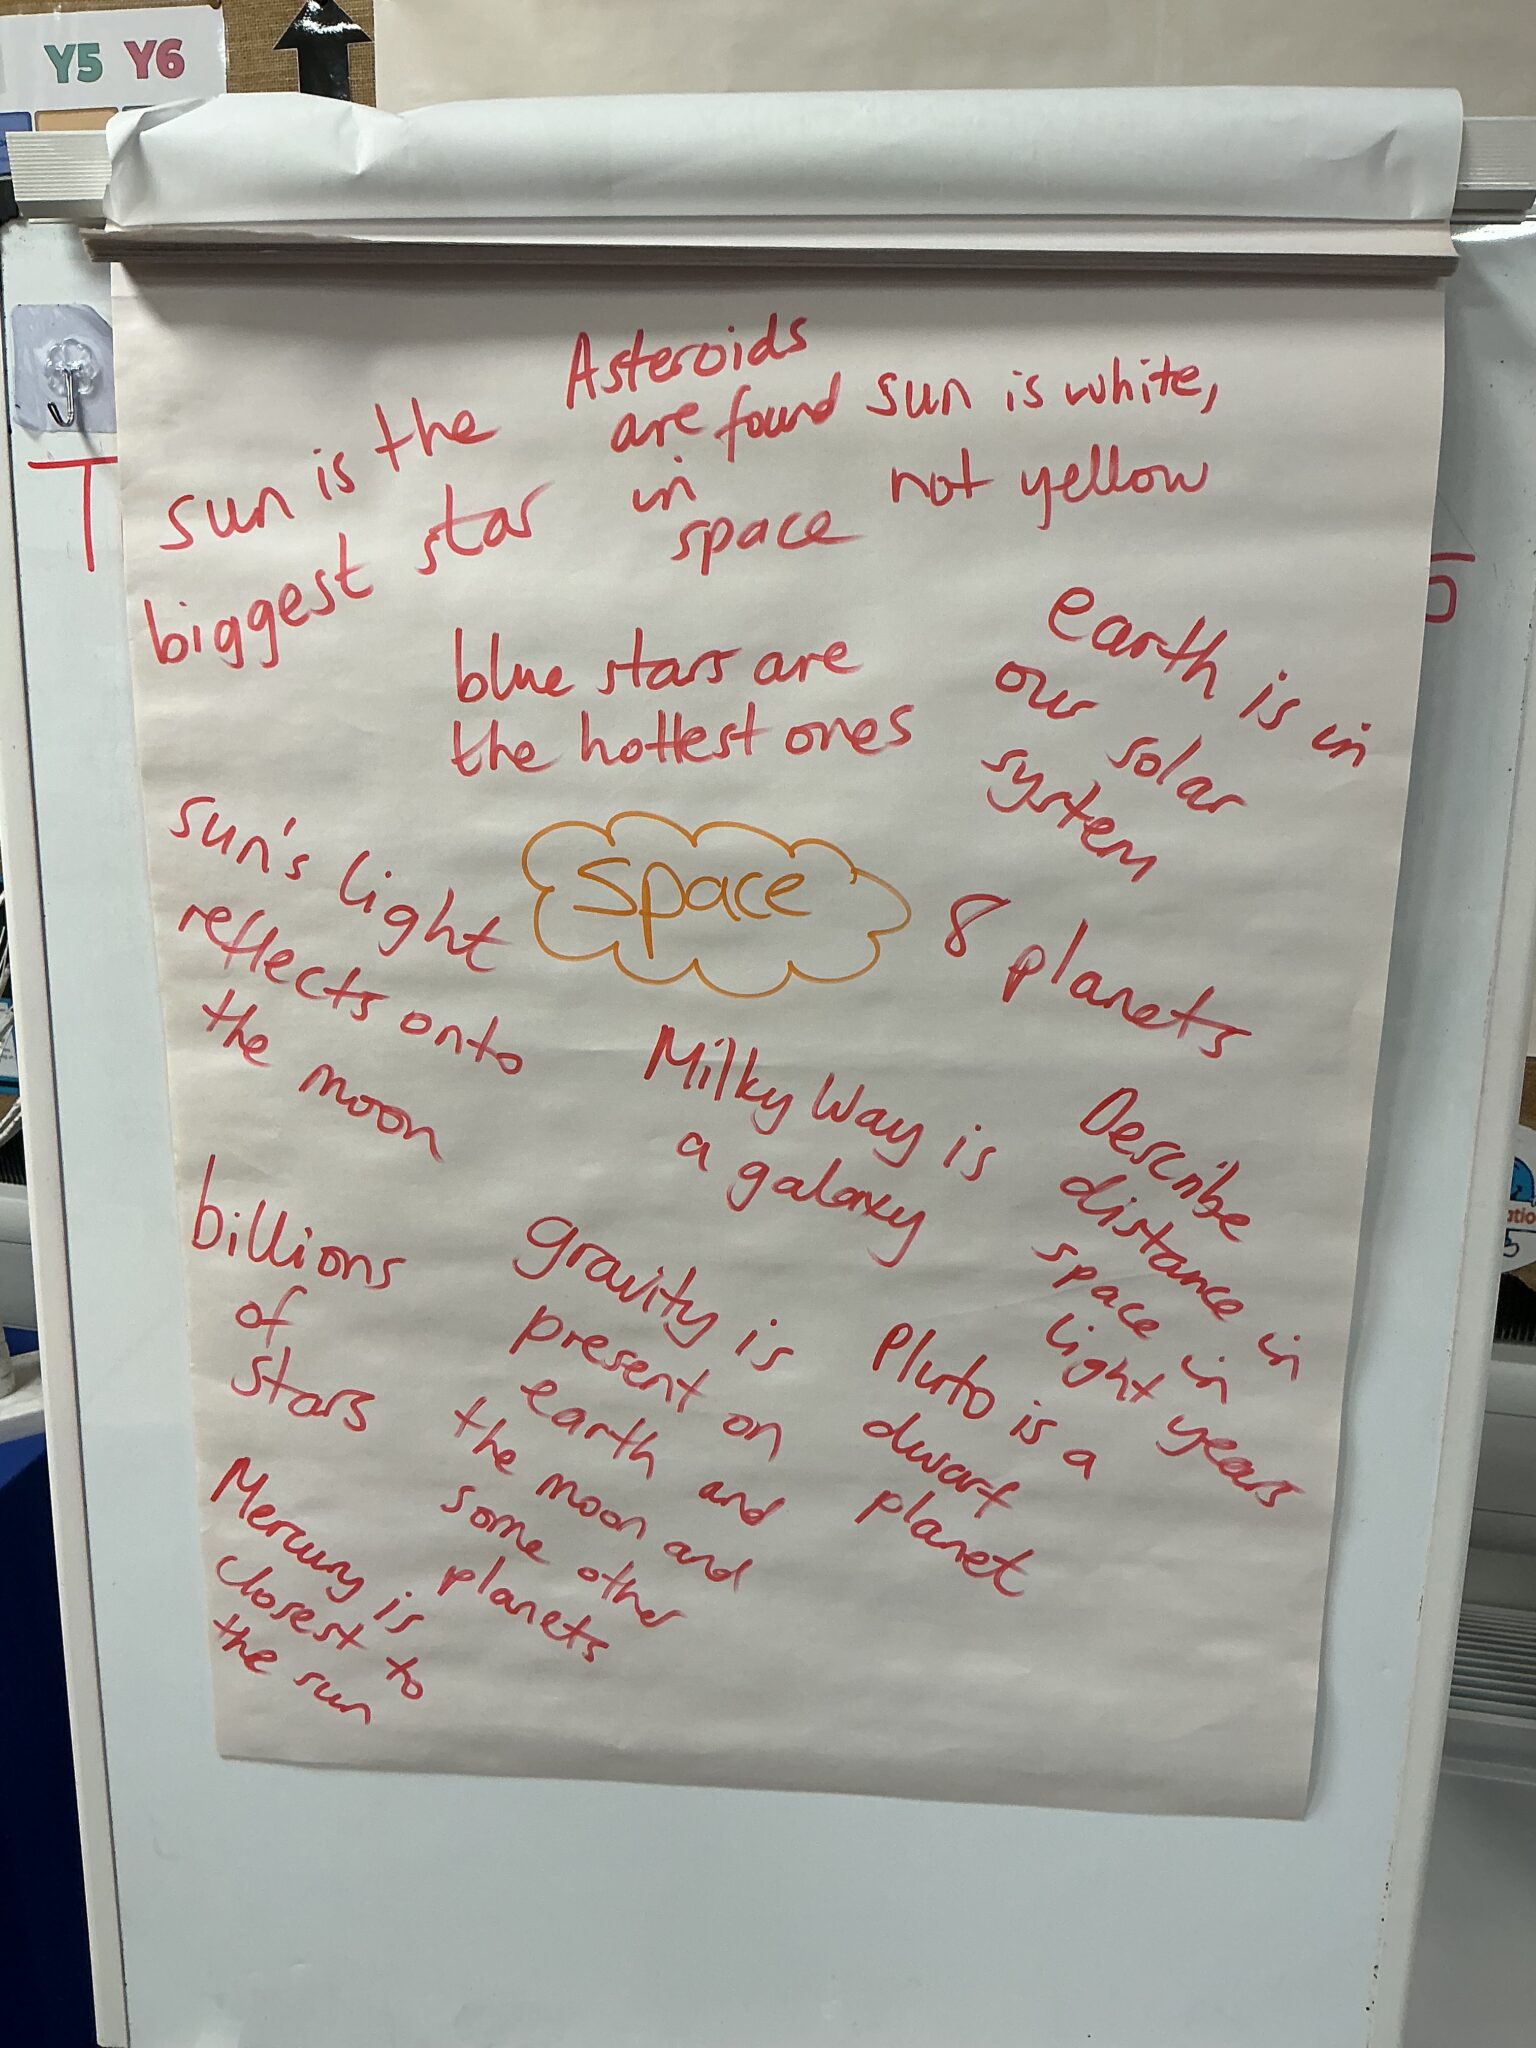 Y5 Y6
T
sun is the
biggest star
Asteroids
are found
in
space
sun is white,
not yellow
blue stars are
the hottest ones
earth is in
our solar
system
sun's light
reflects onto
the moon
space
8 planets
Milky Way is
a galaxy
Describe
distance in
space in
light years
billions
of
stars
gravity is
present on
earth and
the moon and
some other
planets
Pluto is a
dwarf
planet
Mercury is
closest to
the sun
5